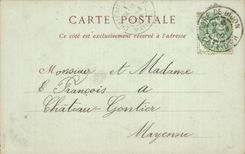 CARTE POSTALE
Ce côté est exclusivement réservé à l'adresse
Monsieur et Madame
E François à
Château-Gontier
Mayenne